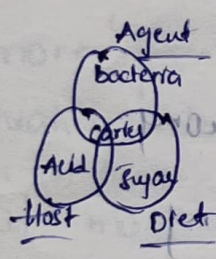 Agent
bacteria
caries
Acid
Sugar
Host
Diet